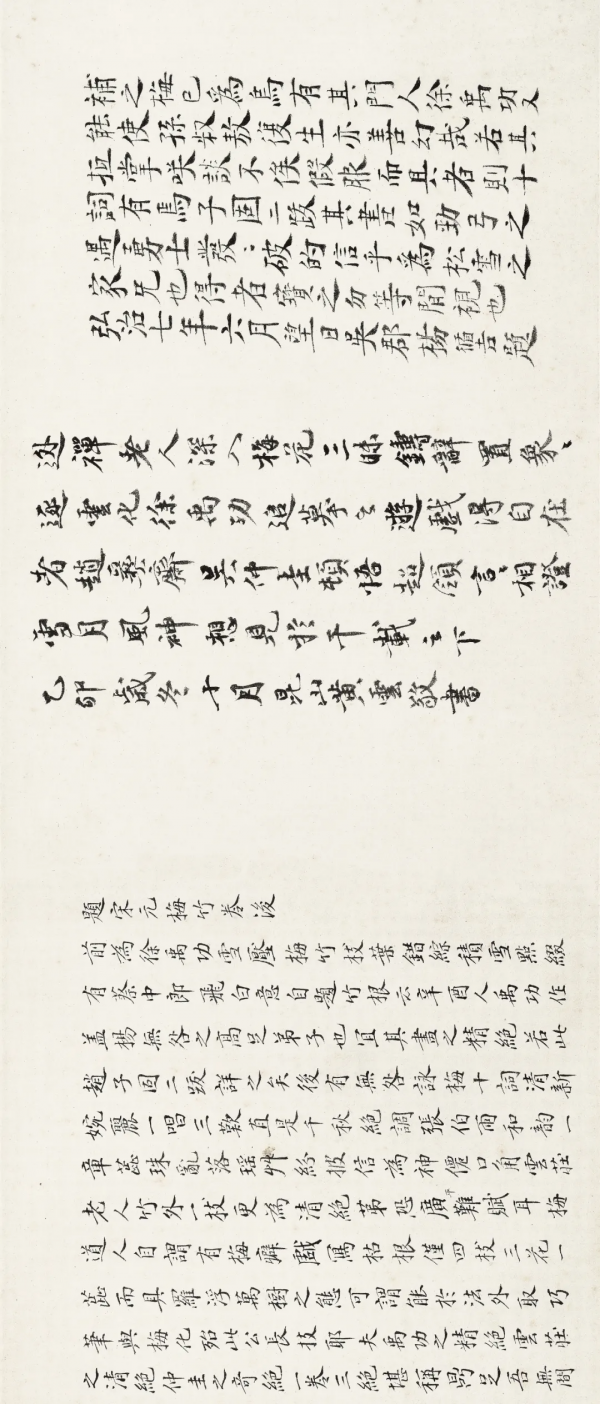 補之梅已為烏有其門人徐禹功又
能使孫叔敖復生亦善幻哉若其
抵掌咲談不俟假服而具者則十
詞有焉子固二跋其書如勁弓之
遇勇士發〻破的信乎為松雪之
家兄也得者寶之勿等閒視也
弘治七年六月望日吳郡楊循吉題
逃禪老人深入梅花三昧鑄辭置象〻
逐雲化徐禹功追摹之遊戲得自在
者趙彝齋吳仲圭頓悟超領言〻相證
雪月風神想見於千載之下
乙卯歲冬十月昆山黃雲敬書
題宋元梅竹卷後
前為徐禹功雪壓梅竹枝葉錯綜積雪點綴
有蔡中郎飛白意自題竹根云辛酉人禹功作
蓋楊無咎之高足弟子也宜其畫之精絕若此
趙子固二跋詳之矣後有無咎詠梅十詞清新
婉麗一唱三歎直是千秋絕調張伯雨和韵一
章蕊珠亂落瑤艸紛披信為神僊口角雲莊
老人竹外一枝更為清絕第恐廣平難賦耳梅
道人自謂有梅癖戲寫枯根僅四枝三花一
蕊而具羅浮萬樹之態可謂能於法外取巧
筆與梅化殆此公長技耶夫禹功之精絕雲莊
之清絕仲圭之奇絕一卷三絕堪稱鼎足吾無間